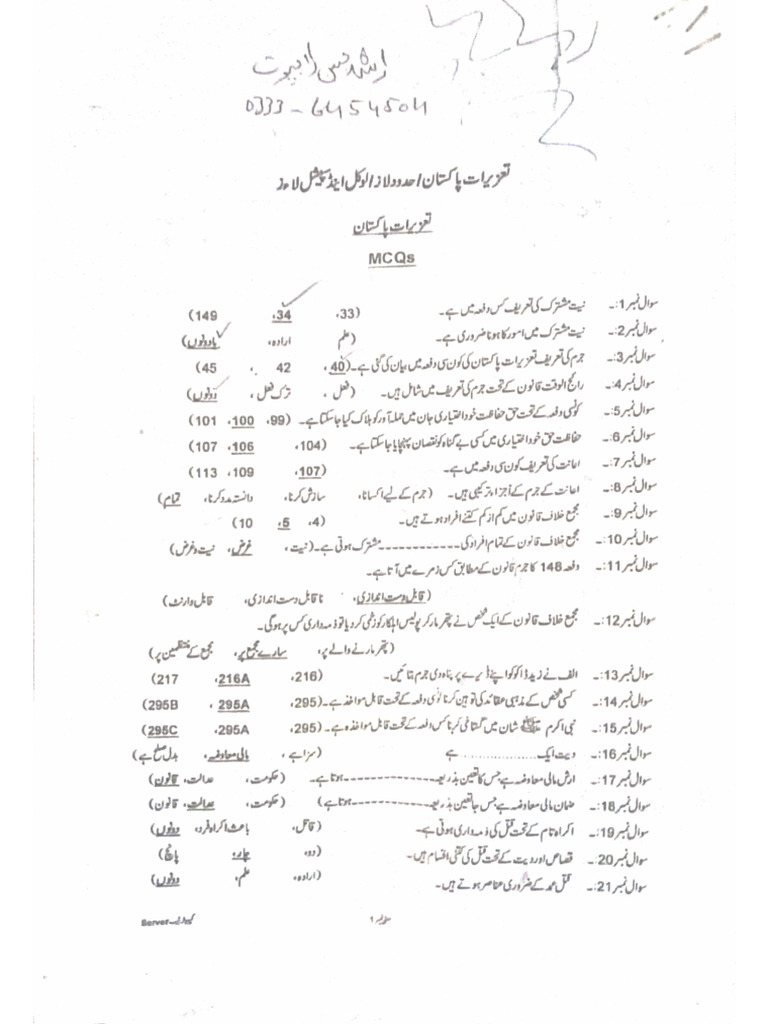 0333-6454504
تعزیرات پاکستان/حدود لاز/لوکل اینڈ سپیشل لاءز
تعزیرات پاکستان
MCQs
سوال نمبر1:۔ نیت مشترک کی تعریف کس دفعہ میں ہے۔ (33، 34، 149)
سوال نمبر2:۔ نیت مشترک میں امور کا ہونا ضروری ہے۔ (علم ارادہ، یا دونوں)
سوال نمبر3:۔ جرم کی تعریف تعزیرات پاکستان کی کون سی دفعہ میں بیان کی گئی ہے۔ (40، 42، 45)
سوال نمبر4:۔ رائج الوقت قانون کے تحت جرم کی تعریف میں شامل ہیں۔ (فعل، ترک فعل، دونوں)
سوال نمبر5:۔ کونسی دفعہ کے تحت حق حفاظت خود اختیاری جان میں حملہ آور کو ہلاک کیا جا سکتا ہے۔ (99، 100، 101)
سوال نمبر6:۔ حفاظت حق خود اختیاری میں کسی بے گناہ کو نقصان پہنچایا جا سکتا ہے۔ (104، 106، 107)
سوال نمبر7:۔ اعانت کی تعریف کون سی دفعہ میں ہے۔ (107، 109، 113)
سوال نمبر8:۔ اعانت کے جرم کے اجزاء ترکیبی ہیں۔ (جرم کے لیے اکسانا، سازش کرنا، دانستہ مدد کرنا، تمام)
سوال نمبر9:۔ مجمع خلاف قانون میں کم از کم کتنے افراد ہوتے ہیں۔ (4، 5، 10)
سوال نمبر10:۔ مجمع خلاف قانون کے تمام افراد کی ------------ مشترک ہوتی ہے۔ (نیت، غرض، نیت و غرض)
سوال نمبر11:۔ دفعہ 148 کا جرم قانون کے مطابق کس زمرے میں آتا ہے۔
(قابل دست اندازی، نا قابل دست اندازی، قابل وارنٹ)
سوال نمبر12:۔ مجمع خلاف قانون کے ایک شخص نے پتھر مار کر پولیس اہلکار کو زخمی کر دیا تو ذمہ داری کس پر ہوگی۔
(پتھر مارنے والے پر، سارے مجمع پر، مجمع کے منتظمین پر)
سوال نمبر13:۔ الف نے زید ڈاکو کو اپنے ڈیرے پر پناہ دی جرم بتائیں۔ (216، 216A، 217)
سوال نمبر14:۔ کسی شخص کے مذہبی عقائد کی توہین کرنا کونسی دفعہ کے تحت قابل مواخذہ ہے۔ (295، 295A، 295B)
سوال نمبر15:۔ نبی اکرم ﷺ شان میں گستاخی کرنا کس دفعہ کے تحت قابل مواخذہ ہے۔ (295، 295A، 295C)
سوال نمبر16:۔ دیت ایک ................ ہے (سزا ہے، مالی معاوضہ، بدل صلح ہے)
سوال نمبر17:۔ ارش مالی معاوضہ ہے جس کا تعین بذریعہ ------------ ہوتا ہے۔ (حکومت، عدالت، قانون)
سوال نمبر18:۔ ضمان مالی معاوضہ ہے جس کا تعین بذریعہ ------------ ہوتا ہے) (حکومت، عدالت، قانون)
سوال نمبر19:۔ اکراہ تام کے تحت قتل کی ذمہ داری ہوتی ہے۔ (قاتل، باعث اکراہ فرد، دونوں)
سوال نمبر20:۔ قصاص اور دیت کے تحت قتل کی کتنی اقسام ہیں۔ (دو، چار، پانچ)
سوال نمبر21:۔ قتل عمد کے ضروری عناصر ہوتے ہیں۔ (ارادہ، علم، دونوں)
صفحہ نمبر 1
Server